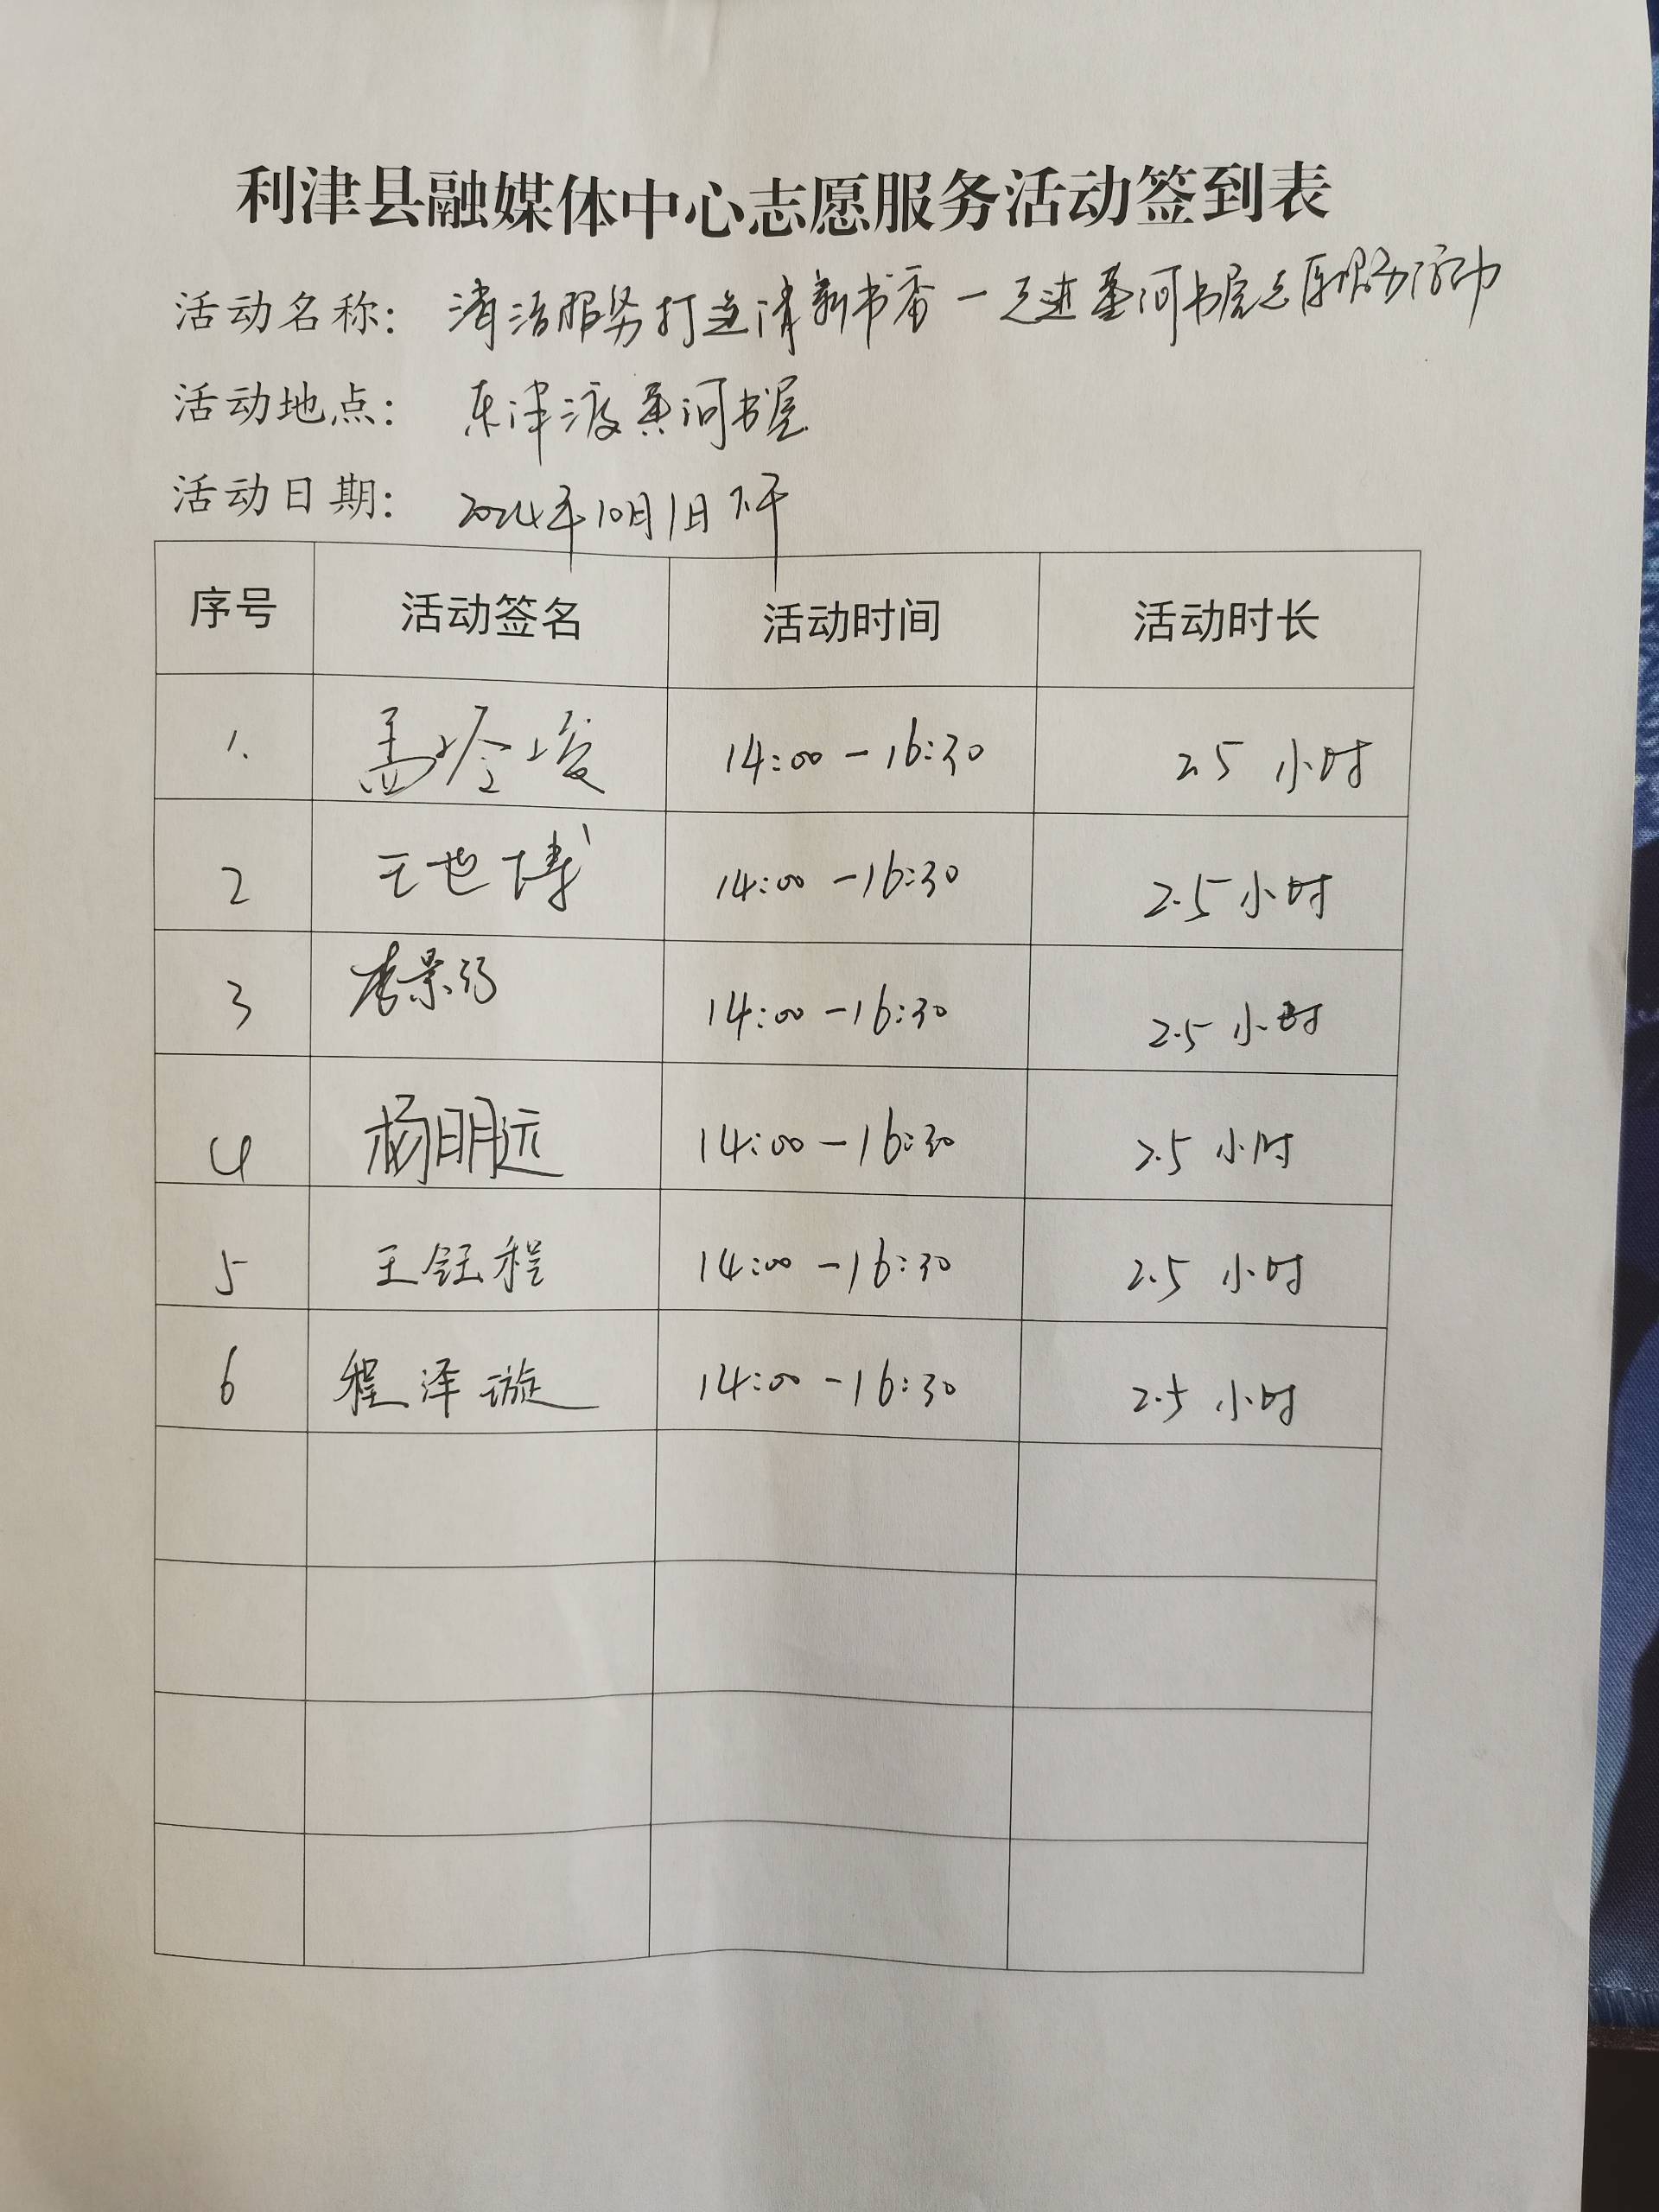 利津县融媒体中心志愿服务活动签到表
活动名称: 清洁服务打造清新书香一走进黄河书屋志愿服务活动
活动地点: 东津渡黄河书屋
活动日期: 2024年10月1日下午
序号 活动签名 活动时间 活动时长
1. 14:00-16:30 2.5 小时
2 王世博 14:00-16:30 2.5小时
3 李景 14:00-16:30 2.5小时
4 杨明远 14:00-16:30 2.5小时
5 王钰程 14:00-16:30 2.5小时
6 程泽璇 14:00-16:30 2.5小时